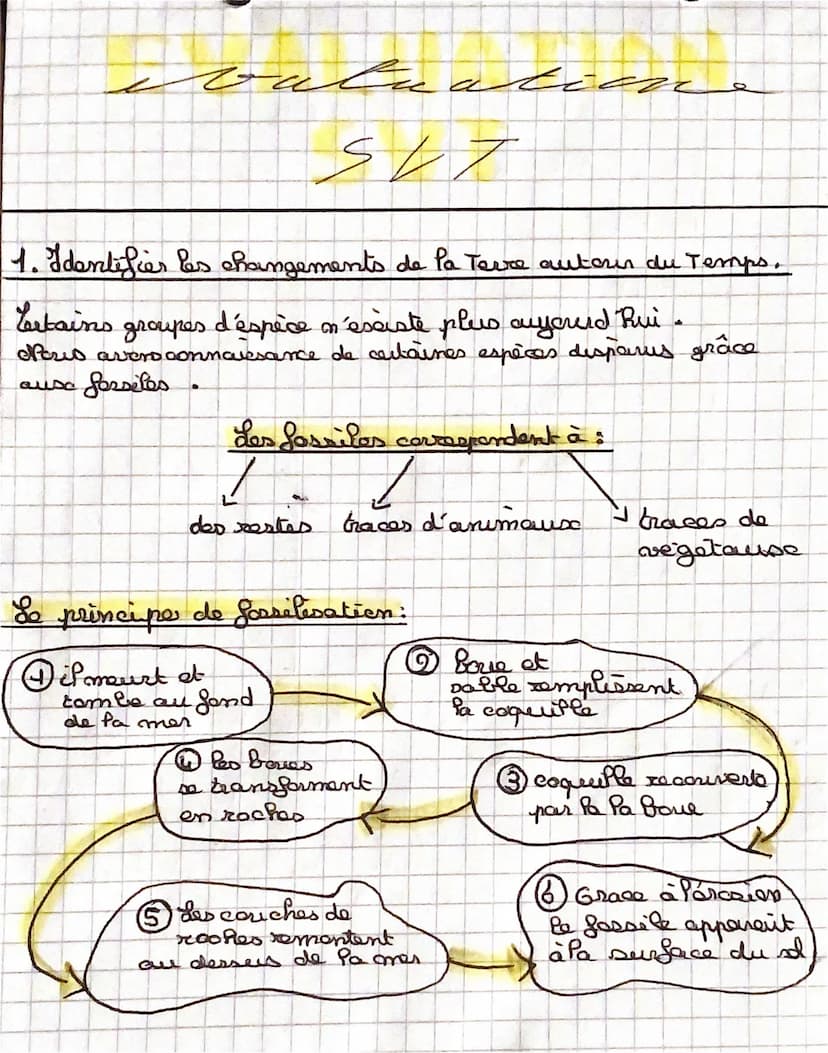 EVALUATION
evaluation
SVT
1. Identifier les changements de la Terre autour du Temps.
Certains groupes d'espèce n'existe plus aujourd'hui.
Nous avons connaissance de certaines espèces disparus grâce
aux fossiles.
Les fossiles correspondent à :
des restes traces d'animaux traces de
végétaux
Le principe de fossilisation :
1 il meurt et
tombe au fond
de la mer
2 Boue et
sable remplissent
la coquille
3 coquille recouverte
par la la boue
4 les boues
se transforment
en roches
5 Les couches de
roches remontent
au dessus de la mer
6 Grace à
le fossile apparait
à la surface du sol